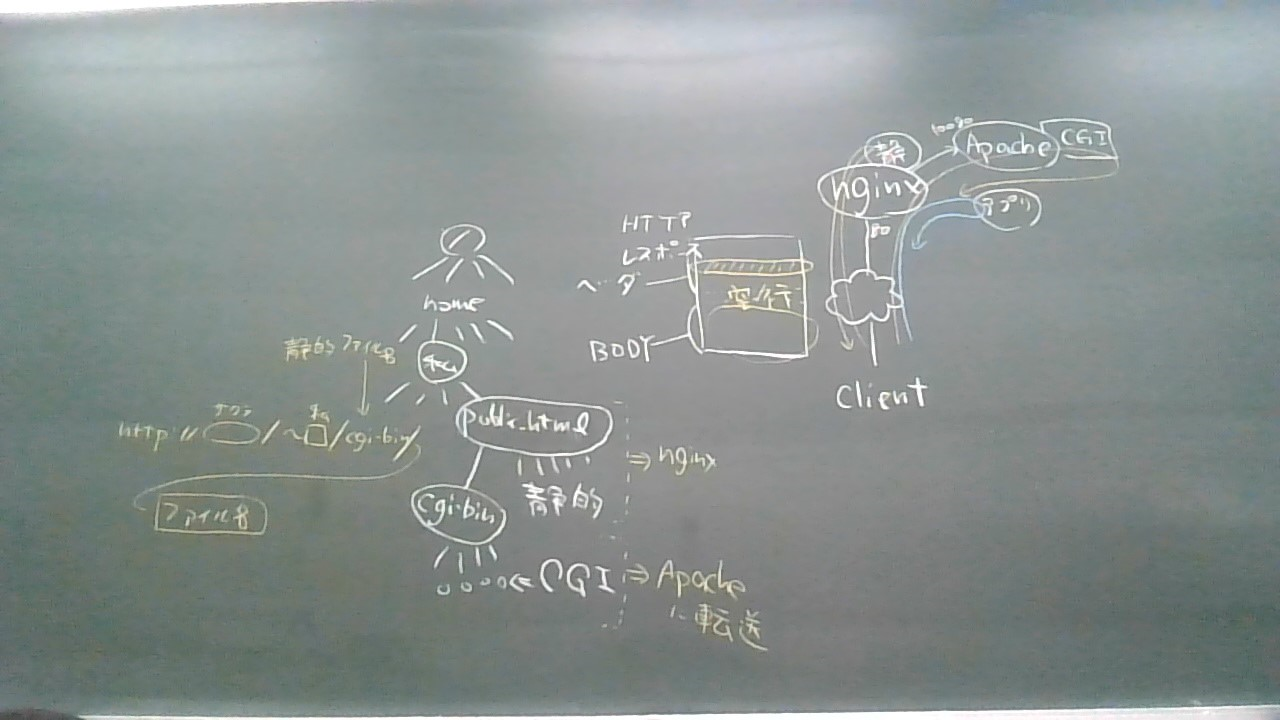 /
home
私
public_html
静的
⇒ nginx
cgi-bin
⇐ CGI
⇒ Apache
に転送
静的ファイル名
http://
/~
/cgi-bin/
ファイル名
HTTP
レスポース
ヘーダ
空行
BODY
静
nginx
80
Apache
CGI
アプリ
client